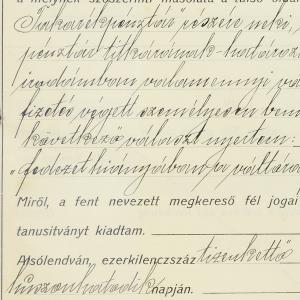 a melynek szószerinti másolata a túlsó oldal
Takarékpénztár részére neki,
pénztár titkárának határoz
irodámban valamennyi vá
fizetés végett személyesen bem
következő választ nyertem:
„fedezet hiányában a váltóra
Miről, a fent nevezett megkereső fél jogai
tanusitványt kiadtam.
Alsólendván, ezerkilenczszáz tizenkettő
huszonhatodik napján.